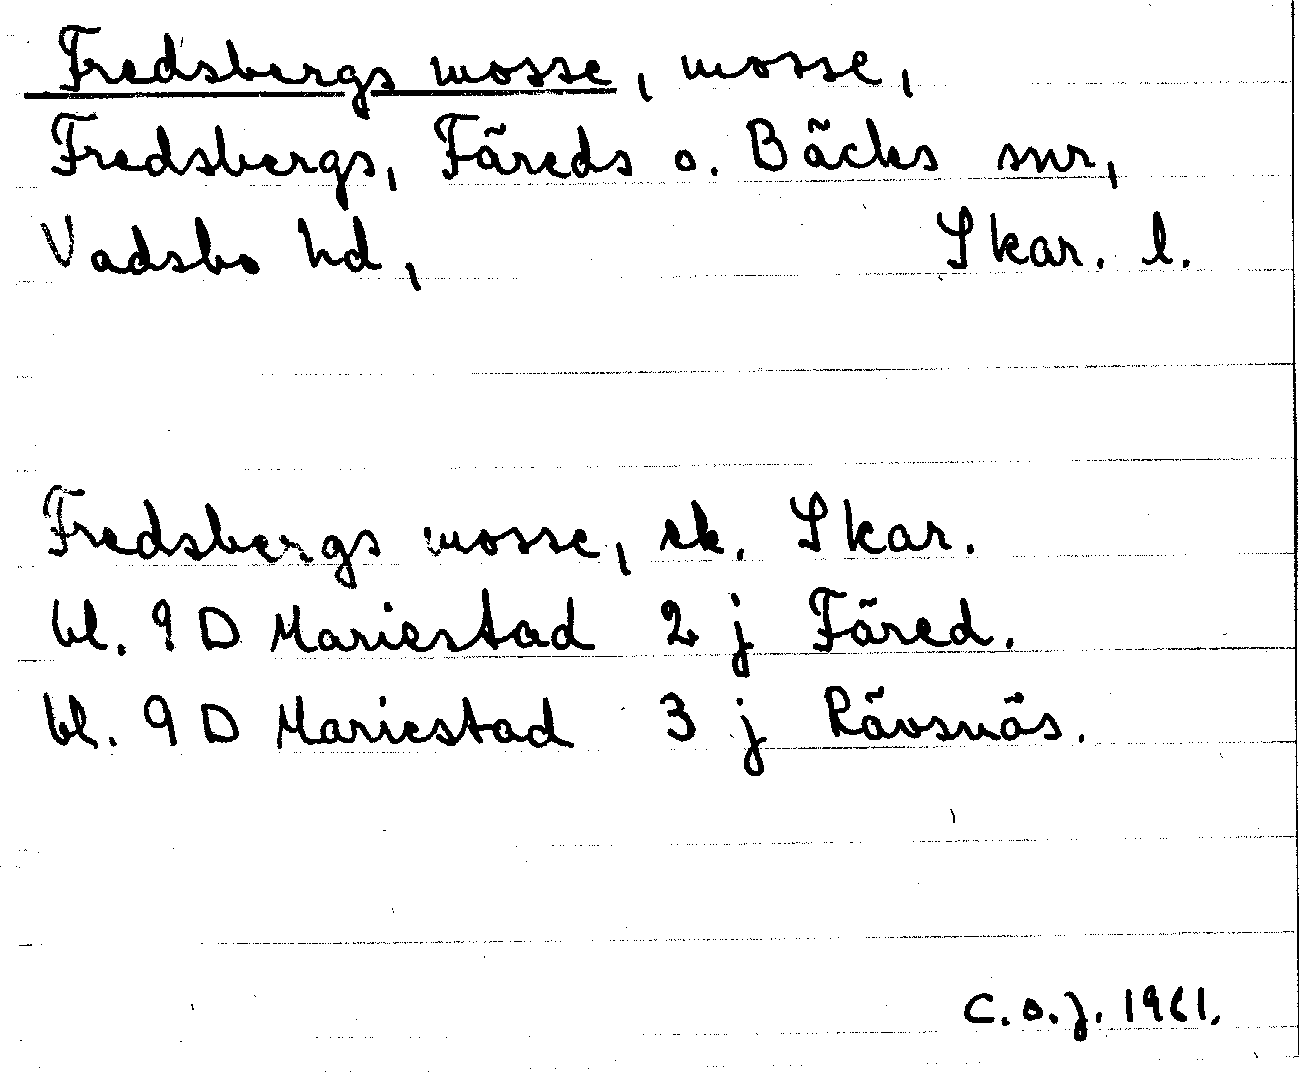 Fredsbergs mosse, mosse,
Fredsbergs, Färeds o. Bäcks snr,
Vadsbo hd, Skar. l.
Fredsbergs mosse, ek. Skar.
bl. 9 D Mariestad 2 j Färed.
bl. 9 D Mariestad 3 j Rävsnäs.
C.O.J. 1961.